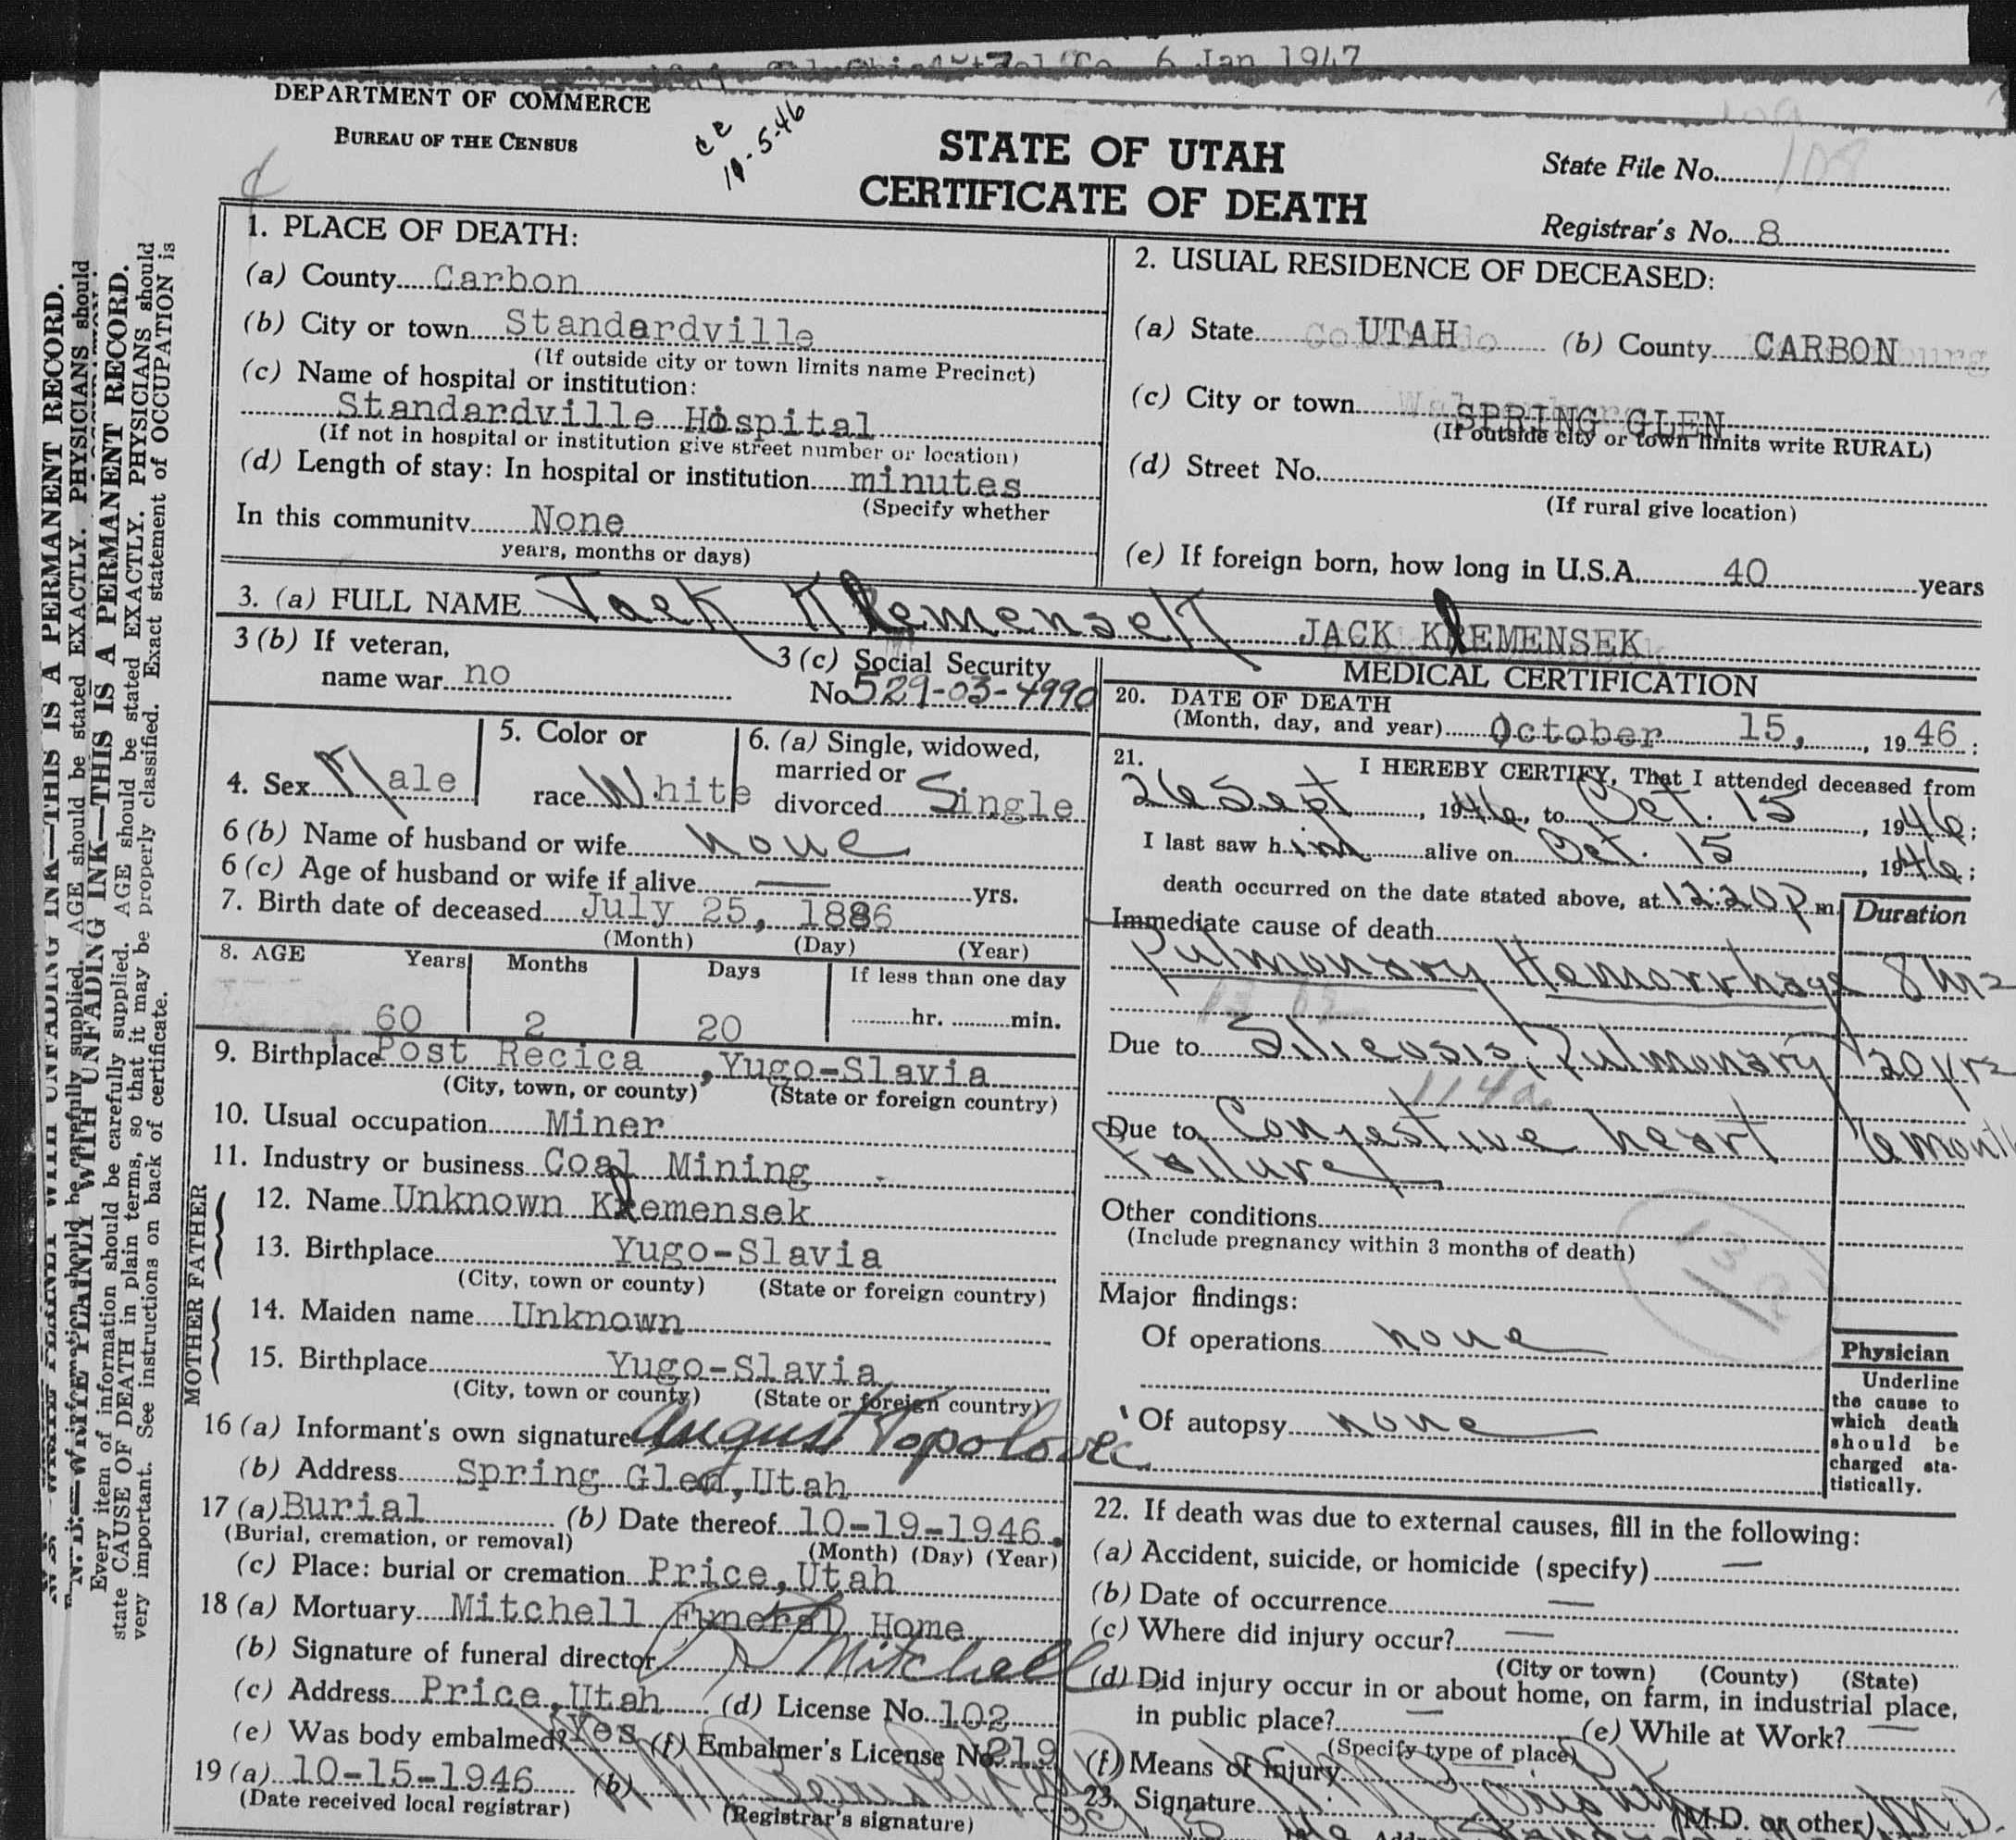 6 Jan 1947
DEPARTMENT OF COMMERCE
BUREAU OF THE CENSUS
10-5-46
STATE OF UTAH
CERTIFICATE OF DEATH
State File No. 109
Registrar's No. 8
N. B.—WRITE PLAINLY WITH UNFADING INK—THIS IS A PERMANENT RECORD.
Every item of information should be carefully supplied. AGE should be stated EXACTLY. PHYSICIANS should
state CAUSE OF DEATH in plain terms, so that it may be properly classified. Exact statement of OCCUPATION is
very important. See instructions on back of certificate.
1. PLACE OF DEATH:
(a) County Carbon
(b) City or town Standardville
(If outside city or town limits name Precinct)
(c) Name of hospital or institution:
Standardville Hospital
(If not in hospital or institution give street number or location)
(d) Length of stay: In hospital or institution minutes
(Specify whether
In this community None
years, months or days)
2. USUAL RESIDENCE OF DECEASED:
(a) State UTAH (b) County CARBON
(c) City or town SPRING GLEN
(If outside city or town limits write RURAL)
(d) Street No.
(If rural give location)
(e) If foreign born, how long in U.S.A. 40 years
3. (a) FULL NAME Jack Klemensek JACK KLEMENSEK
3 (b) If veteran,
name war no
3 (c) Social Security
No. 529-03-4990
4. Sex Male
5. Color or
race White
6. (a) Single, widowed,
married or
divorced Single
6 (b) Name of husband or wife none
6 (c) Age of husband or wife if alive — yrs.
7. Birth date of deceased July 25, 1886
(Month) (Day) (Year)
8. AGE Years Months Days If less than one day
60 2 20 hr. min.
9. Birthplace Post Recica, Yugo-Slavia
(City, town, or county) (State or foreign country)
10. Usual occupation Miner
11. Industry or business Coal Mining
FATHER
12. Name Unknown Klemensek
13. Birthplace Yugo-Slavia
(City, town or county) (State or foreign country)
MOTHER
14. Maiden name Unknown
15. Birthplace Yugo-Slavia
(City, town or county) (State or foreign country)
16 (a) Informant's own signature August Topolovec
(b) Address Spring Glen, Utah
17 (a) Burial (b) Date thereof 10-19-1946.
(Burial, cremation, or removal) (Month) (Day) (Year)
(c) Place: burial or cremation Price, Utah
18 (a) Mortuary Mitchell Funeral Home
(b) Signature of funeral director Mitchell
(c) Address Price, Utah (d) License No. 102
(e) Was body embalmed? Yes (f) Embalmer's License No. 219
19 (a) 10-15-1946 (b)
(Date received local registrar) (Registrar's signature)
MEDICAL CERTIFICATION
20. DATE OF DEATH
(Month, day, and year) October 15, 1946;
21. I HEREBY CERTIFY, That I attended deceased from
26 Sept, 1946, to Oct. 15, 1946;
I last saw him alive on Oct. 15, 1946;
death occurred on the date stated above, at 12:20 P m.
Duration
Immediate cause of death
Pulmonary Hemorrhage 8 hrs
Due to Silicosis, Pulmonary 20 yrs
114a
Due to Congestive heart 6 months
Failure
Other conditions
(Include pregnancy within 3 months of death)
Major findings:
Of operations none
Of autopsy none
Physician
Underline
the cause to
which death
should be
charged sta-
tistically.
22. If death was due to external causes, fill in the following:
(a) Accident, suicide, or homicide (specify) —
(b) Date of occurrence —
(c) Where did injury occur? —
(City or town) (County) (State)
(d) Did injury occur in or about home, on farm, in industrial place,
in public place? — (e) While at Work? —
(Specify type of place)
(f) Means of injury
23. Signature (M.D. or other) M.D.